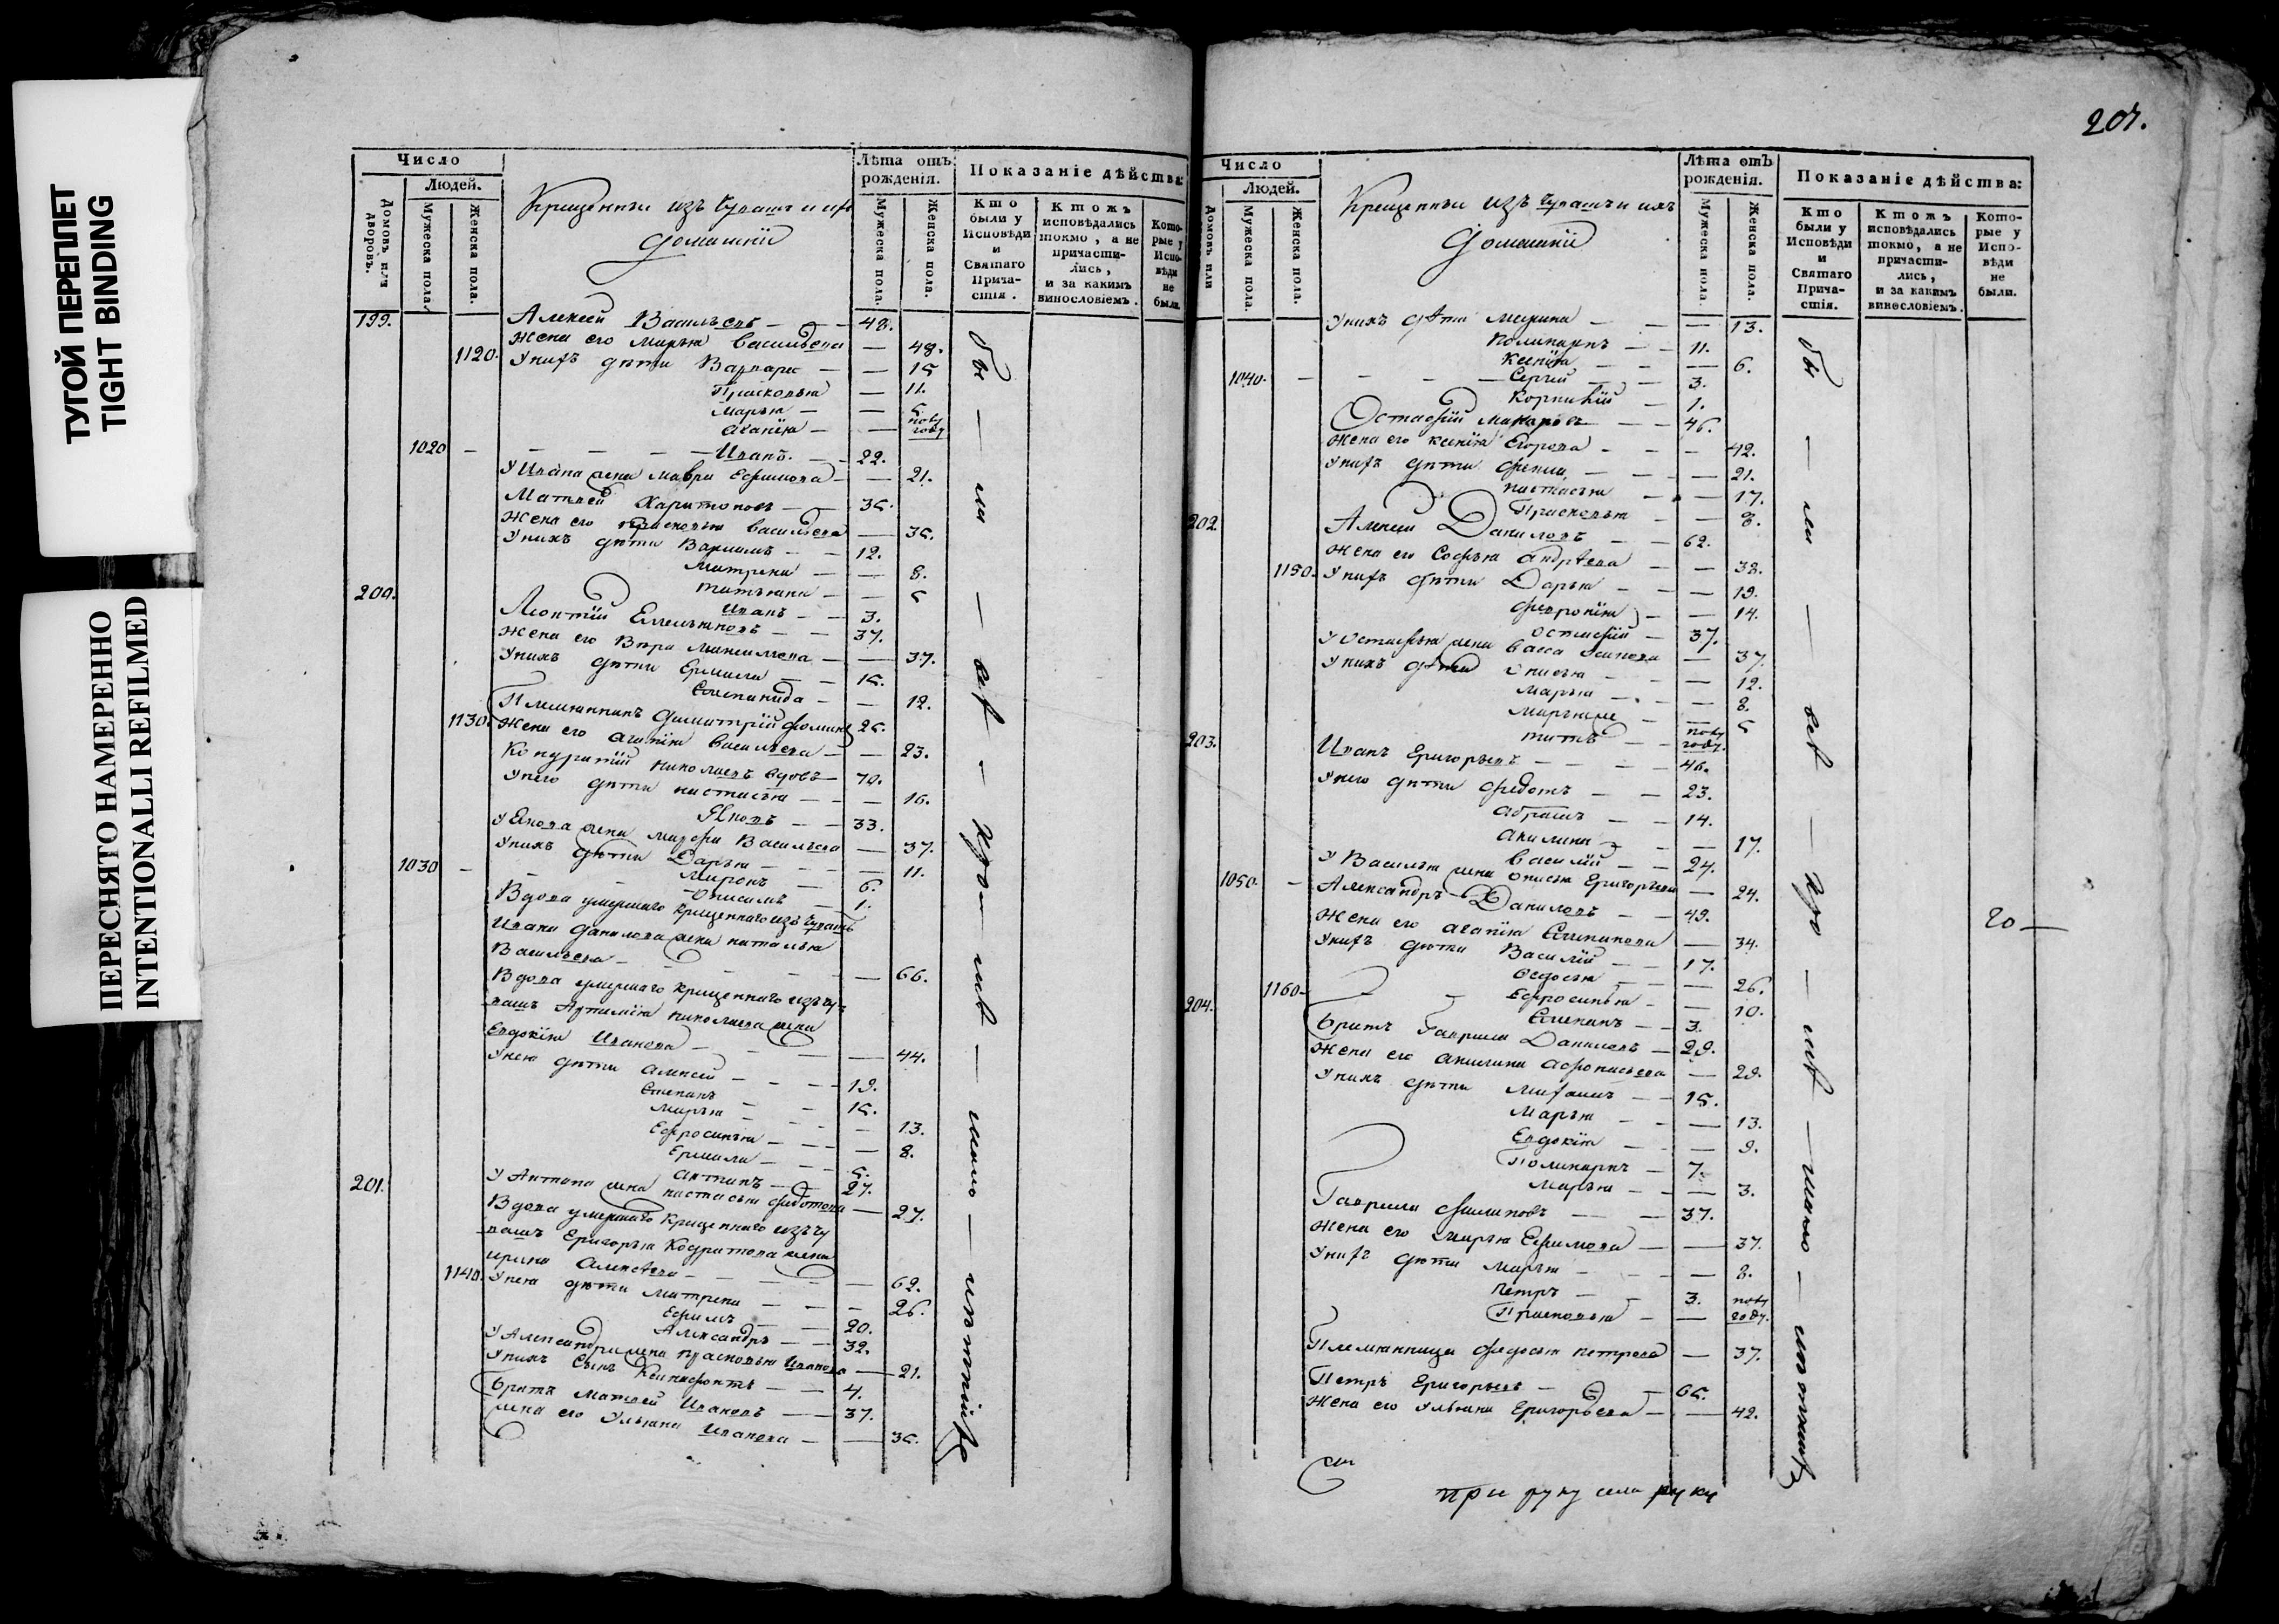 ТУГОЙ ПЕРЕПЛЕТ
TIGHT BINDING
ПЕРЕСНЯТО НАМЕРЕННО
INTENTIONALLI REFILMED
Число
Людей.
Домовъ или дворовъ.
Мужеска пола.
Женска пола.
Крещенныи изъ Чувашъ и ихъ
домашніи
Лѣта отъ рожденія.
Мужеска пола.
Женска пола.
Показаніе дѣйства:
Кто были у Исповѣди и Святаго Причастія.
Ктожъ исповѣдались токмо, а не причастились, и за какимъ винословіемъ.
Которые у Исповѣди не были.
199. Алексей Васильевъ — 48.
Жена его Марья Васильева — 48.
1120. У нихъ дѣти Варвара — 15
Прасковья — 11.
Марья — 5.
Агапія — полу году
1020 — Иванъ — 22.
У Ивана жена Мавра Ефимова — 21.
Матвей Харитоновъ — 35.
Жена его Прасковья Васильева — 35.
У нихъ дѣти Варламъ — 12.
Матрена — 8.
Татьяна — 5
Иванъ — 3.
200. Леонтій Емельяновъ — 37.
Жена его Вѣра Максимова — 37.
У нихъ дѣти Ермила — 15.
Степанида — 12.
Племянникъ Димитрій Фоминъ 25.
1130. Жена его Агапія Васильева — 23.
Кондратій Николаевъ вдовъ — 70.
У него дѣти Настасья — 16.
Яковъ — 33.
У Якова жена Марфа Васильева — 37.
У нихъ дѣти Дарья — 11.
1030 — Миронъ — 6.
Онисимъ — 1.
Вдова умершаго крещеннаго изъ Чувашъ
Ивана Данилова жена Наталья
Васильева — 66.
Вдова умершаго крещеннаго изъ чу-
вашъ Артемія Николаева жена
Евдокія Иванова — 44.
У нея дѣти Алексей — 19.
Степанъ — 15.
Марья — 13.
Ефросинья — 8.
Ермила — 5.
201. Антипъ — 27.
У Антипа жена Настасья Федотова — 27.
Вдова умершаго крещеннаго изъ чу
вашъ Григорья Кодратова жена
Ирина Алексѣева — 62.
1140. У нея дѣти Матрена — 26.
Ефимъ — 20.
Александръ — 32.
У Александра жена Прасковья Иванова — 21.
У нихъ сынъ Ксинофонтъ — 4.
Братъ Матвей Ивановъ — 37.
Жена его Ульяна Иванова — 35.
бы — ли — всѣ — кро — мѣ — мало — лѣтнихъ
207.
Число
Людей.
Домовъ или
Мужеска пола.
Женска пола.
Крещенныи изъ Чувашъ и ихъ
домашніи
Лѣта отЪ рожденія.
Мужеска пола.
Женска пола.
Показаніе дѣйства:
Кто были у Исповѣди и Святаго Причастія.
Ктожъ исповѣдались токмо, а не причастились, и за какимъ винословіемъ.
Которые у Исповѣди не были.
У нихъ дѣти Марина — 13.
Поликарпъ — 11.
Ксенія — 6.
1040. — Сергій — 3.
Корнилій — 1.
Остафій Макаровъ — 46.
Жена его Ксенія Егорова — 42.
У нихъ дѣти Фекла — 21.
Настасья — 17.
Прасковья — 8.
202. Алексей Даниловъ — 62.
Жена его Софья Андрѣева — 38.
1150. У нихъ дѣти Дарья — 19.
Февронія — 14.
Остафій — 37.
У Остафья жена Васса Осипова — 37
У нихъ дѣти Онисья — 12.
Марья — 8.
Марьяна — 5
Титъ — полу году.
203. Иванъ Григорьевъ — 46.
У него дѣти Федотъ — 23.
Абрамъ — 14.
Акилина — 17.
Василій — 24.
У Василья жена Онисья Григорьева — 24.
1050. — Александръ Даниловъ — 49.
Жена его Агапія Степанова — 34.
У нихъ дѣти Василій — 17.
Федосья — 26.
1160 — Ефросинья — 10.
Степанъ — 3.
204. Братъ Гаврила Даниловъ — 29.
Жена его Акилина Афонасьева — 29.
У нихъ дѣти Михаилъ — 15.
Марья — 13.
Евдокія — 9.
Поликарпъ — 7.
Марья — 3.
Гаврила Филиповъ — 37.
Жена его Марья Ефимова — 37.
У нихъ дѣти Марья — 8.
Петръ — 3.
Прасковья — полу году.
Племянница Федосья Петрова — 37.
Петръ Григорьевъ — 65.
Жена его Ульяна Григорьева — 42.
бы — ли — всѣ — кро — мѣ — мало — лѣтнихъ
20 —